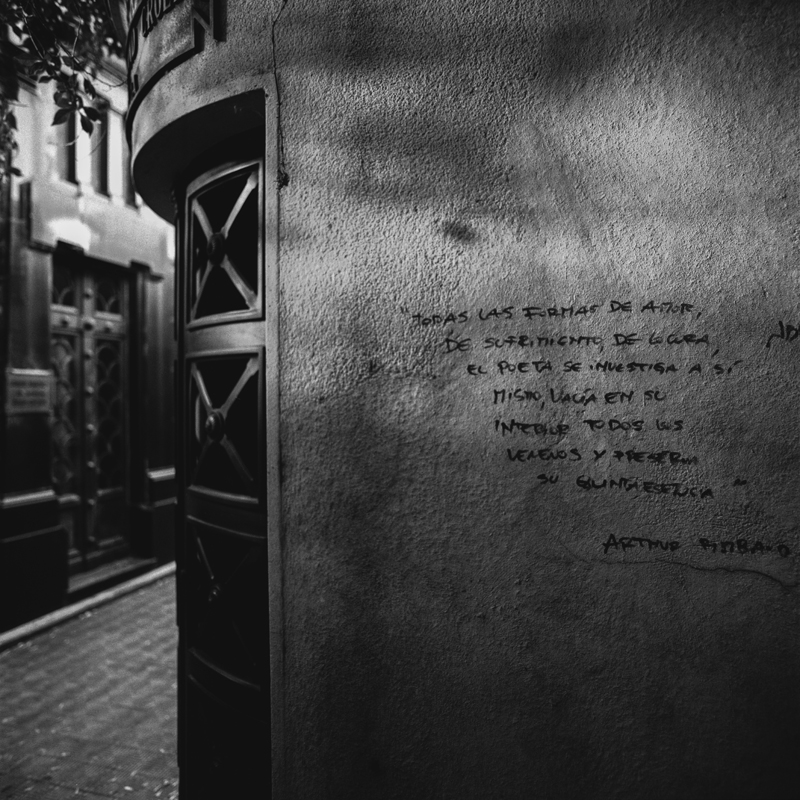 "TODAS LAS FORMAS DE AMOR,
DE SUFRIMIENTO, DE LOCURA,
EL POETA SE INVESTIGA A SÍ
MISMO, VACÍA EN SU
INTERIOR TODOS LOS
VENENOS Y PRESERVA
SU QUINTAESENCIA"
ARTHUR RIMBAUD